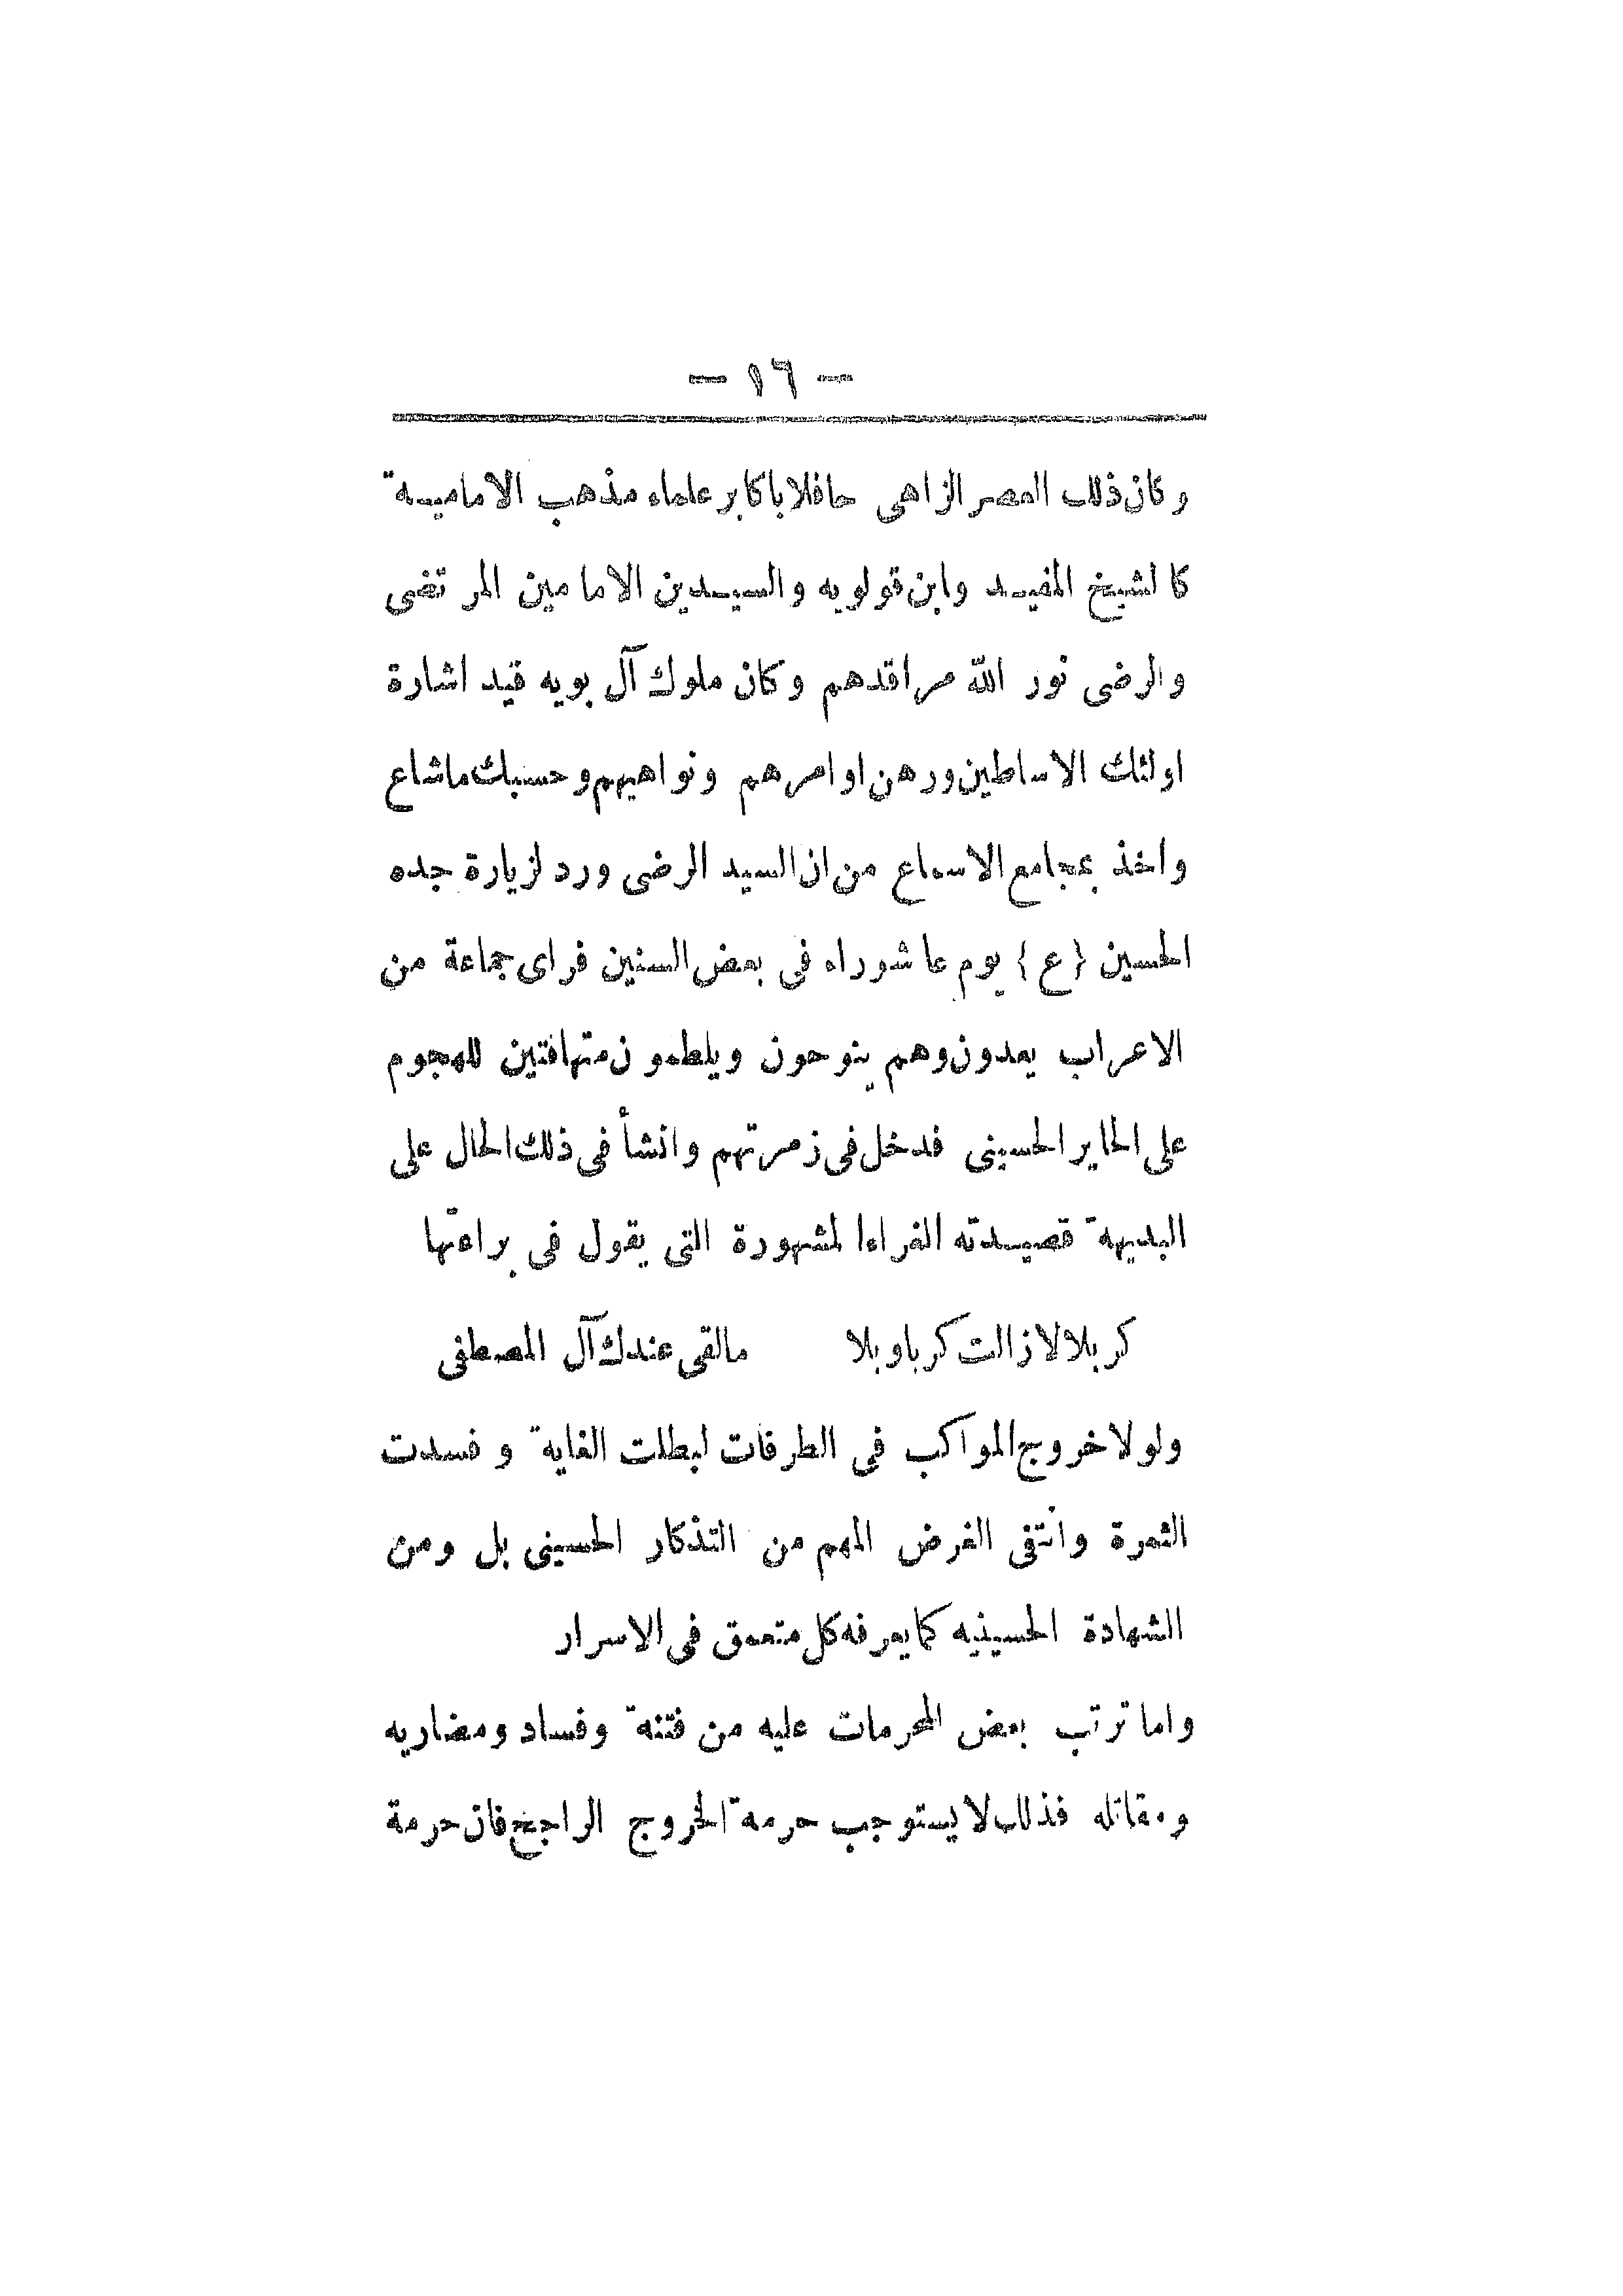 - ١٦ -
وكان ذلك العصر الزاهى حافلا باكابر علماء مذهب الامامية
كالشيخ المفيد وابن قولويه والسيدين الامامين المرتضى
والرضى نور الله مراقدهم وكان ملوك آل بويه قيد اشارة
اولئك الاساطين ورهن اوامرهم ونواهيهم وحسبك ماشاع
واخذ بمجامع الاسماع من ان السيد الرضى ورد لزيارة جده
الحسين {ع} يوم عاشوراء فى بعض السنين فراى جماعة من
الاعراب يعدون وهم ينوحون ويلطمون متهافتين للهجوم
على الحاير الحسينى فدخل فى زمرتهم وانشأ فى ذلك الحال على
البديهة قصيدته الغراء المشهورة التى يقول فى براعتها
كربلا لازالت كربا وبلا مالقى عندك آل المصطفى
ولولا خروج المواكب فى الطرقات لبطلت الغاية وفسدت
الثمرة وانتفى الغرض المهم من التذكار الحسينى بل ومن
الشهادة الحسينيه كما يعرفه كل متعمق فى الاسرار
واما ترتب بعض المحرمات عليه من فتنة وفساد ومضاربه
ومقاتله فذلك لا يستوجب حرمة الخروج الراجح فان حرمة